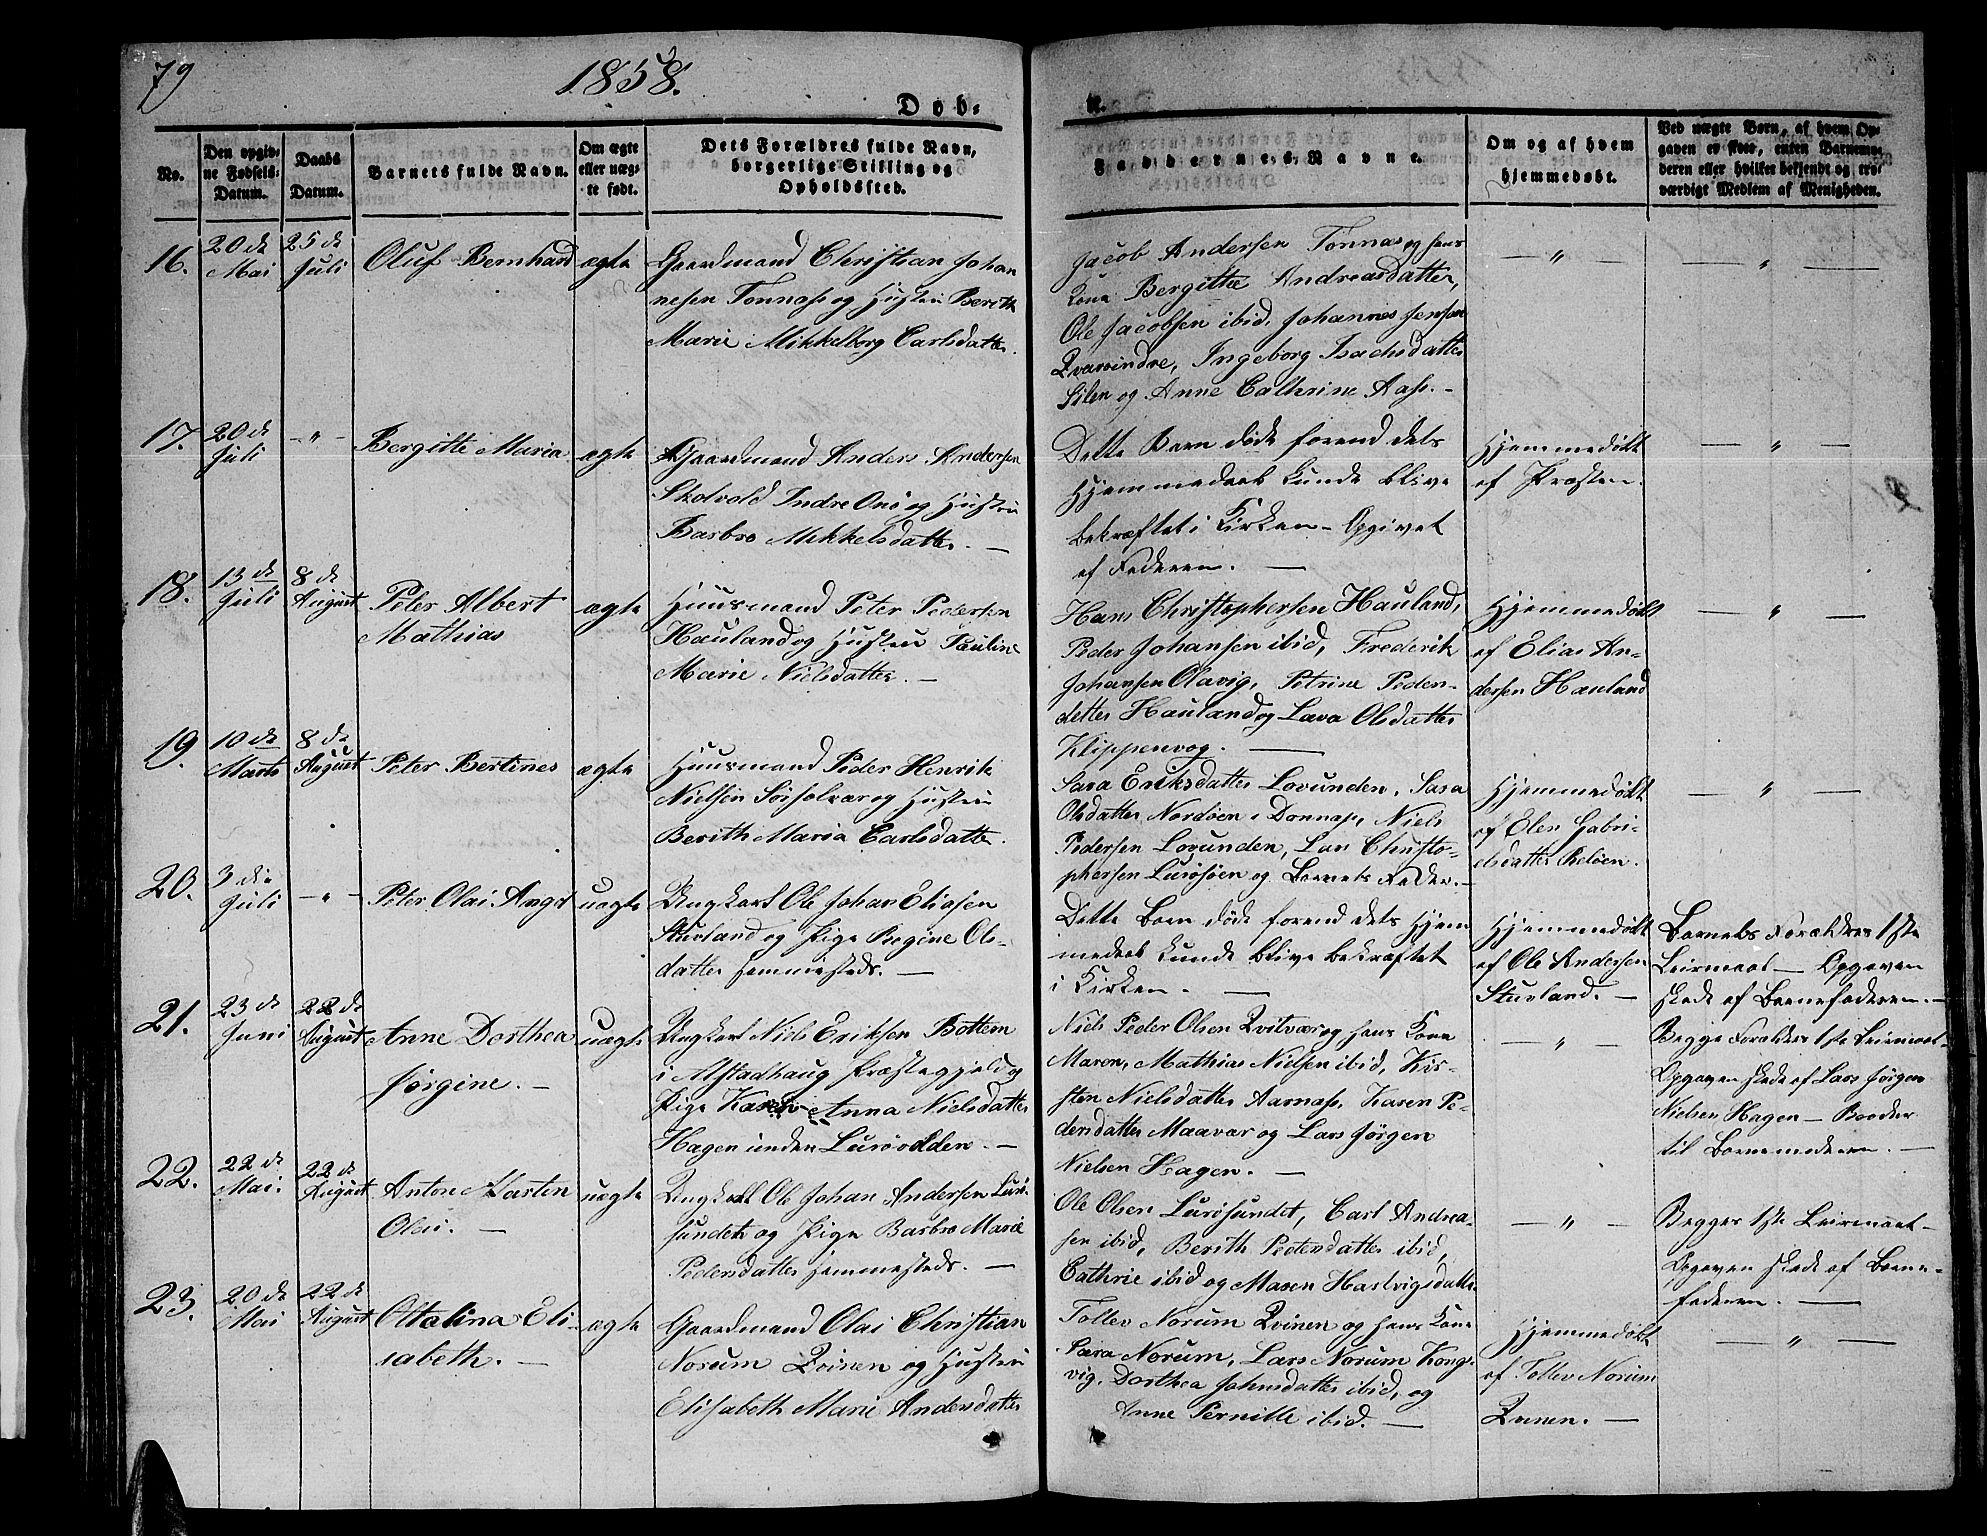 79
1858.
Døb-
te.
No.
Den opgiv-
ne Fødsels-
Datum.
Daabs
Datum.
Barnets fulde Navn.
Om ægte
eller uæg-
te født.
Dets Forældres fulde Navn,
borgerlige Stilling og
Opholdssted.
Faddernes Navne.
Om og af hvem
hjemmedøbt.
Ved uægte Børn, af hvem Op-
gaven er skeet, enten Barnemo-
deren eller hvilket bekjendt og tro-
værdigt Medlem af Menigheden.
16.
20de
Mai
25de
Juli
Oluf Bernhard
ægte
Gaardmand Christian Johan
nesen Tonnæs og Hustru Berith
Marie Mikkelborg Carlsdatter.
Jacob Andersen Tonnæs og hans
Kone Bergitte Andreasdatter,
Ole Jacobsen ibid, Johannes Jensen
Qvarsindre, Ingeborg Isachsdatter
Silen og Anne Cathrine Aase.-
— " —
— " —
17.
20de
Juli
- " -
Bergitte Maria
ægte
Gaardmand Anders Andersen
Skolvold Indre Onø og Hustru
Barbro Mikkelsdatter. —
Dette Barn døde forend dets
Hjemmedaab kunde blive
bekræftet i Kirken - Opgivet
af Faderen. —
Hjemmedøbt
af Præsten.
— " —
18.
13de
Juli
8de
August
Peter Albert
Mathias
ægte
Huusmand Peter Pedersen
Hauland og Hustru Pauline
Marie Nielsdatter. —
Hans Christophersen Hauland,
Peder Johansen ibid, Frederik
Johansen Olavig, Petrine Peders-
datter Hauland og Lava Olsdatter
Klippenvog. —
Hjemmedøbt
af Elias An-
dersen Hauland
— " —
19.
10de
Marts
8de
August
Peter Bertines
ægte
Huusmand Peder Henrik
Nielsen Sørsolvær og Hustru
Berith Maria Carlsdatter.
Sara Eriksdatter Lovunden, Sara
Olsdatter Nordøen i Donnæs, Niels
Pedersen Lovunden, Lars Christo-
phersen Lurøsøen og Barnets Fader.-
Hjemmedøbt
af Elen Gabri-
elsdatter Reløen.
— " —
20.
3die
Juli
- " -
Peter Olai Angel
uægte
Ungkarl Ole Johan Eliasen
Stuvland og Pige Regine Ols-
datter Sammesteds. —
Dette Barn døde forend dets Hjem
medaab kunde blive bekræftet
i Kirken. —
Hjemmedøbt
af Ole Andersen
Stuvland. —
Barnets Forældres 1ste
Leirmaal - Opgaven
skede af Barnefaderen. -
21.
23de
Juni
22de
August
Anne Dorthea
Jørgine. -
uægte
Ungkarl Niels Eriksen Bottem
i Alstadhaug Præstegjeld og
Pige Anna Nielsdatter
Hagen under Lurøvolden. —
Niels Peder Olsen Qvitvær og hans Kone
Maren, Mathias Nielsen ibid, Kir-
sten Nielsdatter Aarnæs, Karen Pe-
dersdatter Maavær og Lars Jørgen
Nielsen Hagen. —
— " —
Begge Forældres 1ste Leirmaal-
Opgaven skede af Lars Jørgen
Nielsen Hagen - Broder
til Barnemoderen. —
22.
22de
Mai.
22de
August
Anton Martin
Olai. —
uægte
Ungkarl Ole Johan Andersen Lurø-
sundet og Pige Barbro Marie
Pedersdatter Sammesteds. —
Ole Olsen Lurøsundet, Carl Andrea-
sen ibid, Berith Pedersdatter ibid,
Cathrie ibid og Maren Hartvigsdatter
— " —
Begges 1ste Leirmaal-
Opgaven skede af Barne-
faderen. —
23.
20de
Mai
22de
August
Ottelina Eli-
sabeth. —
ægte
Gaardmand Olai Christian
Norum Qvinen og Hustru
Elisabeth Marie Andersdatter
Tollev Norum Qvinen og hans Kone
Sara Norum, Lars Norum Kongs-
vig. Dorthea Johnsdatter ibid, og
Anne Pernille ibid. —
Hjemmedøbt
af Tollev Norum
Qvinen. —
— " —